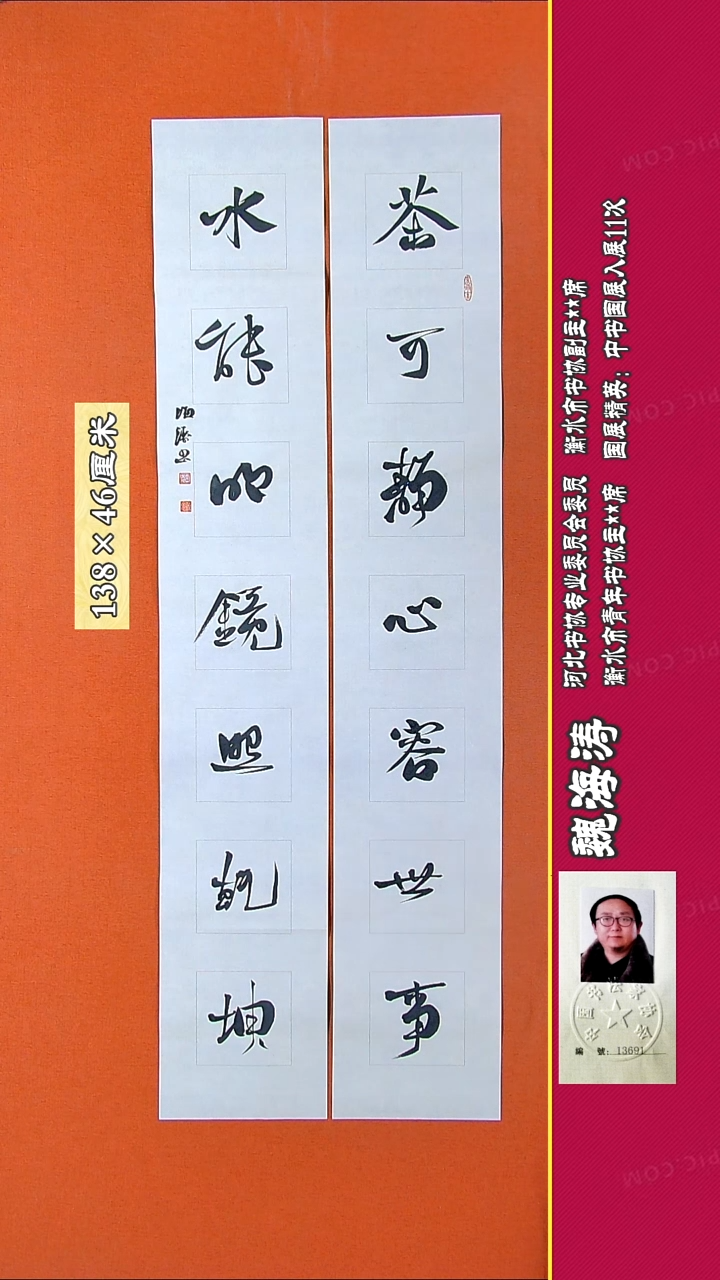 茶可静心容世事
水能明镜照乾坤
海涛书
138×46厘米
河北书协专业委员会委员 衡水市书协副主**席
衡水市青年书协主**席 国展精英：中书国展入展11次
魏海涛
编 號：13691